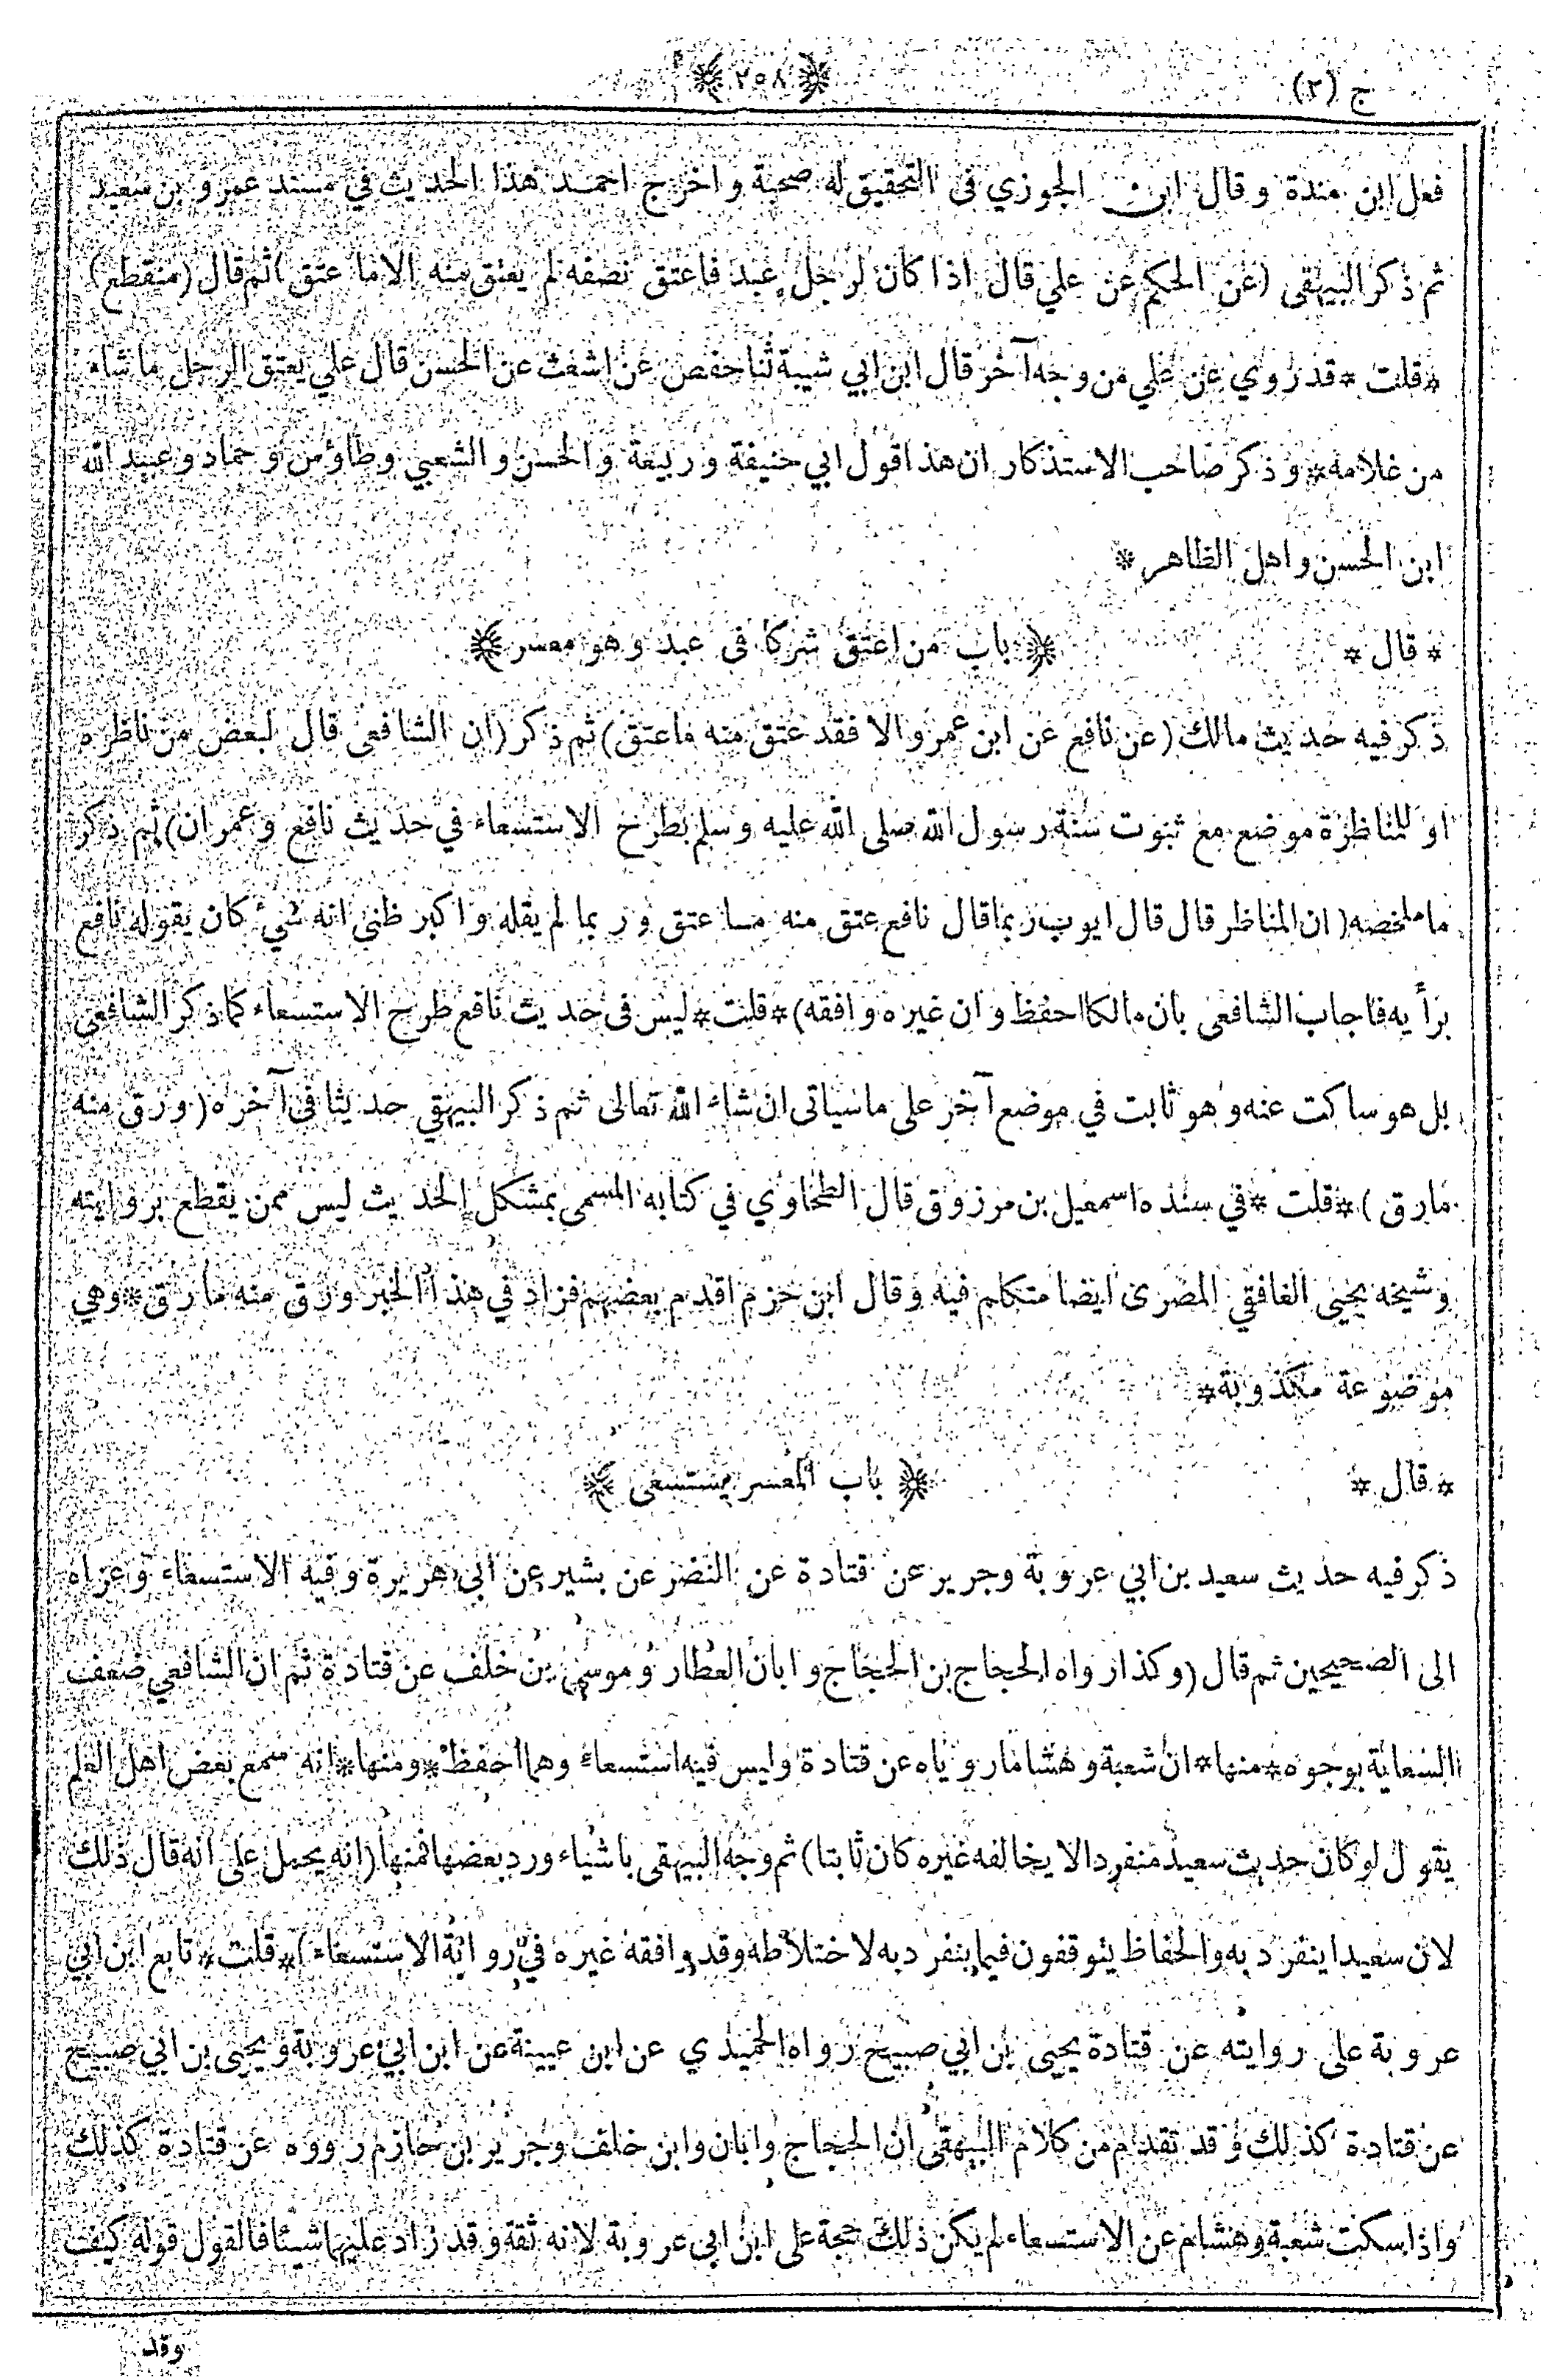 ج (٢)
﴿ ٢٥٨ ﴾
فعل ابن مندة وقال ابن الجوزي فى التحقيق له صحبة واخرج احمد هذا الحديث في مسند عمرو بن سعيد
ثم ذكر البيهقى (عن الحكم عن علي قال اذا كان لرجل عبد فاعتق نصفه لم يعتق منه الا ما عتق) ثم قال (منقطع)
* قلت * قد روي عن علي من وجه آخر قال ابن ابي شيبة ثنا حفص عن اشعث عن الحسن قال علي يعتق الرجل ما شاء
من غلامه * وذكر صاحب الاستذكار ان هذا قول ابي حنيفة وربيعة والحسن والشعبي وطاؤس وحماد وعبيد الله
ابن الحسن واهل الظاهر *
* قال * ﴿ باب من اعتق شركا فى عبد وهو معسر ﴾
ذكر فيه حديث مالك (عن نافع عن ابن عمر والا فقد عتق منه ما عتق) ثم ذكر (ان الشافعى قال لبعض من ناظره
او للمناظرة موضع مع ثبوت سنة رسول الله صلى الله عليه وسلم بطرح الاستسعاء في حديث نافع وعمران) ثم ذكر
ما ملخصه (ان المناظر قال قال ايوب ربما قال نافع عتق منه ما عتق وربما لم يقله واكبر ظنى انه شيء كان يقوله نافع
برأيه فاجاب الشافعى بان مالكا احفظ وان غيره وافقه) * قلت * ليس فى حديث نافع طرح الاستسعاء كما ذكر الشافعى
بل هو ساكت عنه وهو ثابت في موضع آخر على ما سياتى ان شاء الله تعالى ثم ذكر البيهقي حديثا فى آخره (ورق منه
مارق) * قلت * في سنده اسمعيل بن مرزوق قال الطحاوي في كتابه المسمى بمشكل الحديث ليس ممن يقطع بروايته
وشيخه يحيى الغافقي المصرى ايضا متكلم فيه وقال ابن حزم اقدم بعضهم فزاد في هذا الخبر ورق منه ما رق * وهي
موضوعة مكذوبة *
* قال * ﴿ باب المعسر يستسعى ﴾
ذكر فيه حديث سعيد بن ابي عروبة وجرير عن قتادة عن النضر عن بشير عن ابي هريرة وفيه الاستسعاء وعزاه
الى الصحيحين ثم قال (وكذا رواه الحجاج بن الحجاج وابان العطار وموسى بن خلف عن قتادة ثم ان الشافعي ضعف
السعاية بوجوه * منها * ان شعبة وهشاما روياه عن قتادة وليس فيه استسعاء وهما احفظ * ومنها * انه سمع بعض اهل العلم
يقول لو كان حديث سعيد منفردا لا يخالفه غيره كان ثابتا) ثم وجه البيهقى باشياء ورد بعضها فمنها (انه يحمل على انه قال ذلك
لان سعيدا ينفرد به والحفاظ يتوقفون فيما ينفرد به لاختلاطه وقد وافقه غيره في رواية الاستسعاء) * قلت * تابع ابن ابي
عروبة على روايته عن قتادة يحيى بن ابي صبيح رواه الحميدي عن ابن عيينة عن ابن ابي عروبة ويحيى بن ابي صبيح
عن قتادة كذلك وقد تقدم من كلام البيهقى ان الحجاج وابان وابن خلف وجرير بن حازم رووه عن قتادة كذلك
واذا سكت شعبة وهشام عن الاستسعاء لم يكن ذلك حجة على ابن ابى عروبة لانه ثقة وقد زاد عليهما شيئا فالقول قوله كيف
وقد